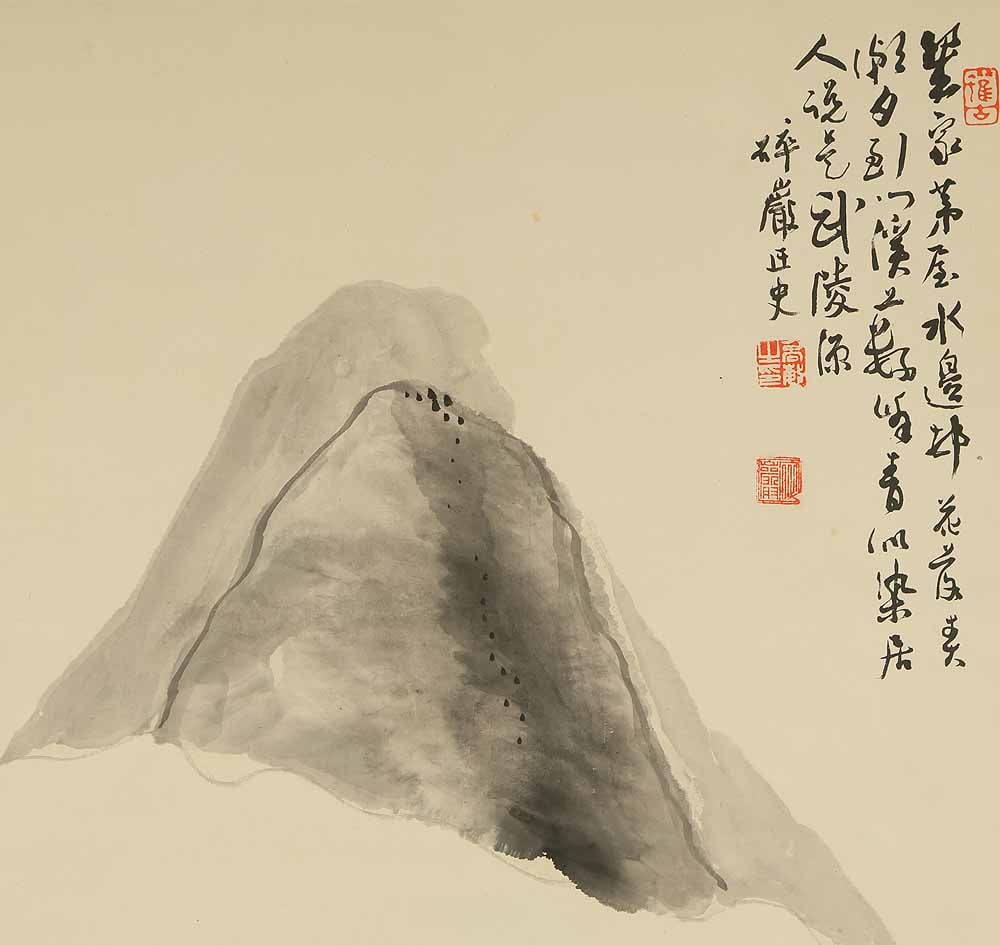 幾家茅屋水邊邨花落春
潮夕到門溪上數峯青似染居
人說是武陵源
碎巖史